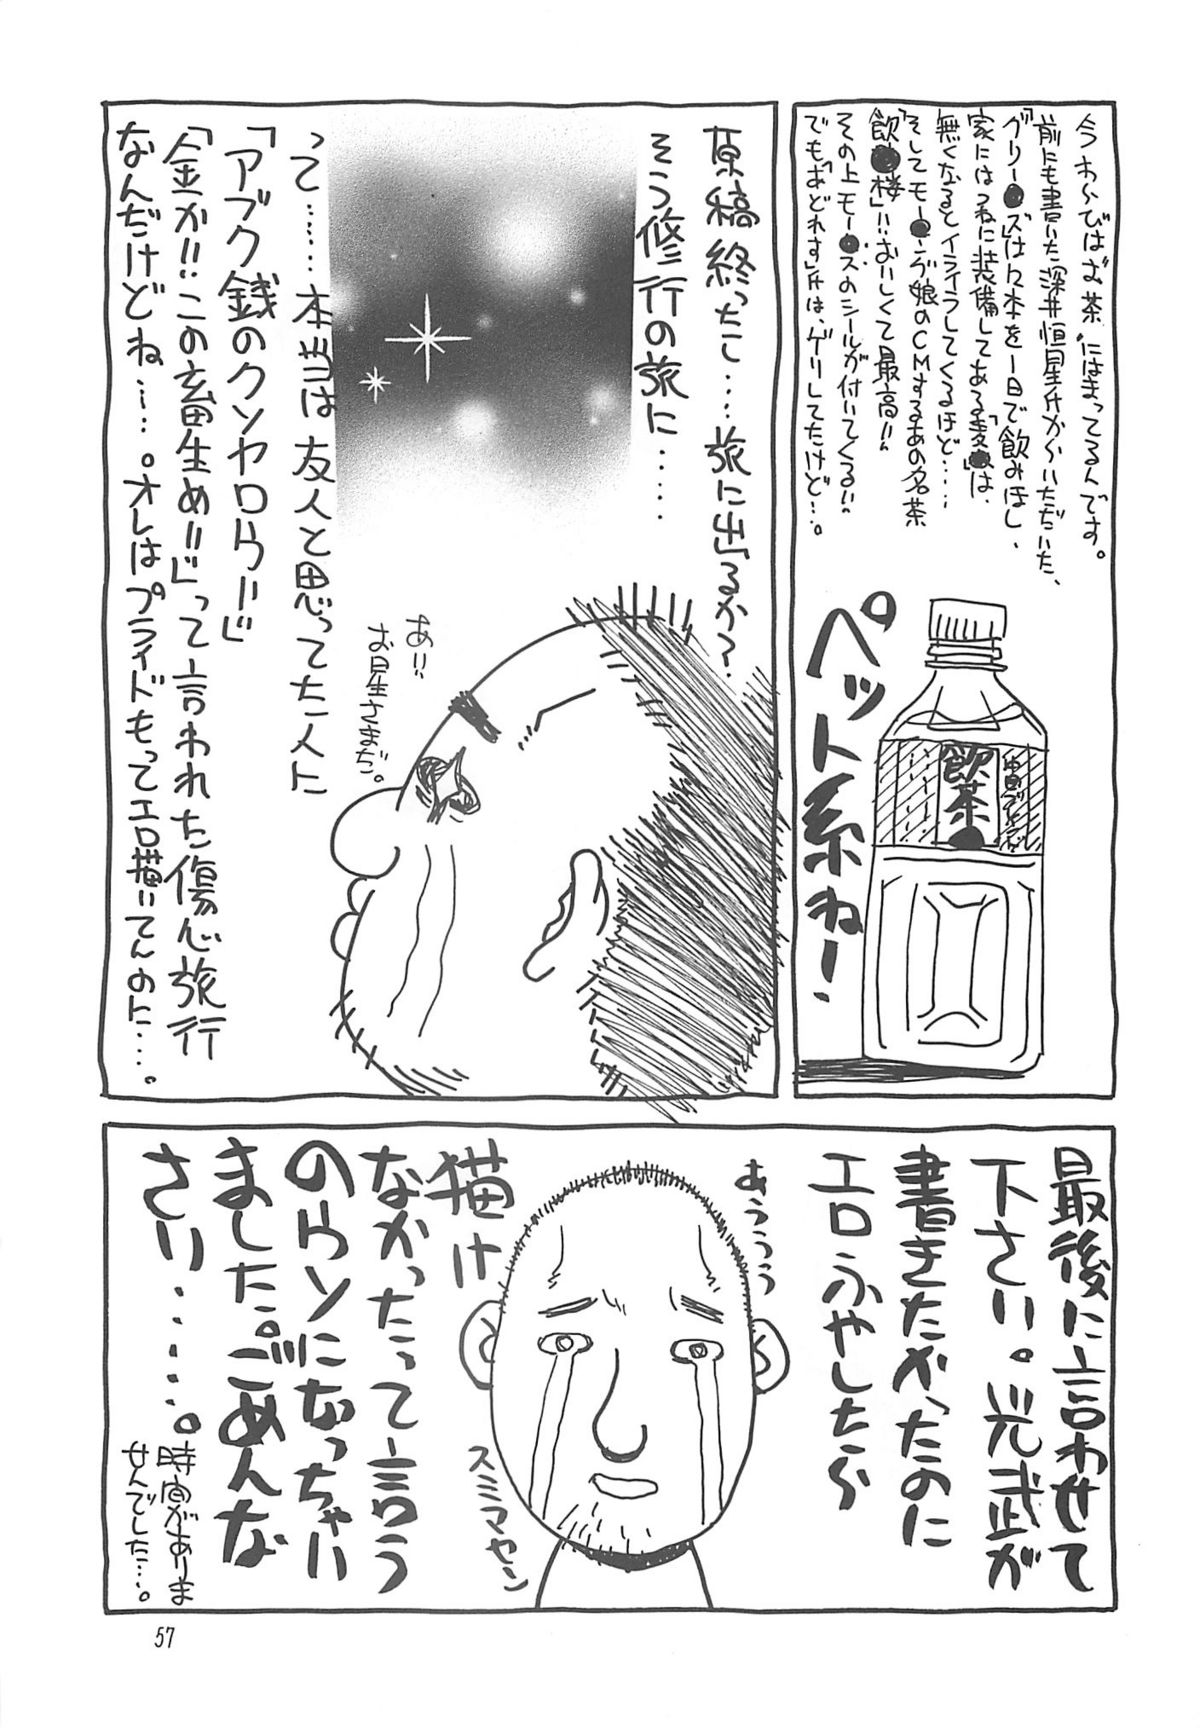 今わ〜びはば茶〟にはまってるんです。
前にも書いた深井恒星氏から〜いただいた、
「グリー●ズ」は2本を1日で飲みほし、
家にはつねに装備してある「麦●」は、
無くなるとイライラしてくるほど‥‥
そしてモー●ング娘のCMするあの名茶
「飲●楼」!!おいしくて最高!!
その上モー●スのシールが付いてくる!!
でも「おどれす」氏は、ゲリしてたけど…。
ペット系ね〜
飲茶●
原稿終ったし‥‥旅に出るか?
そう修行の旅に‥‥‥
あ!!
お星さまだ。
って‥‥‥本当は友人と思ってた人に
「アブク銭のクソヤロウ!!」
「金か!!この畜生め!!」って言われた傷心旅行
なんだけどね‥‥。オレはプライドもってエロ描いてんのに‥‥。
最後に言わせて
下さい。光武が
書きたかったのに
エロふやしたら
あうううう
描け
なかったって言う
のらソになっちゃい
ました。ごめんな
さい‥‥‥。
スミマセン
時間がありま
せんでした…。
57